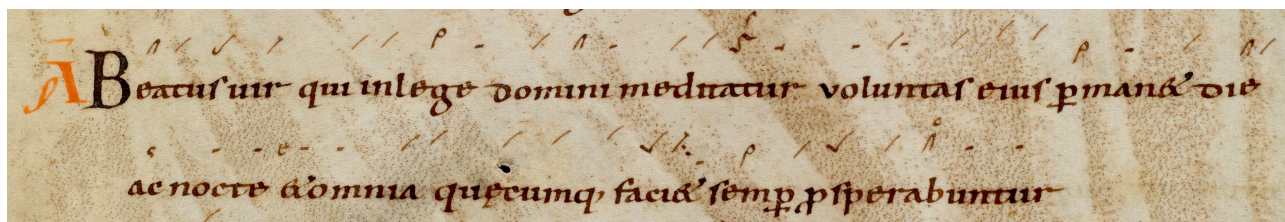 A Beatus uir qui in lege domini meditatur voluntas eius ꝑman& die
ac nocte & omnia quęcumq; faci& semꝑ ꝓsperabuntur